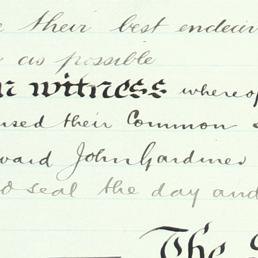 their best endeav
as possible
witness whereof
used their Common
ward John Gardiner
seal the day and
The